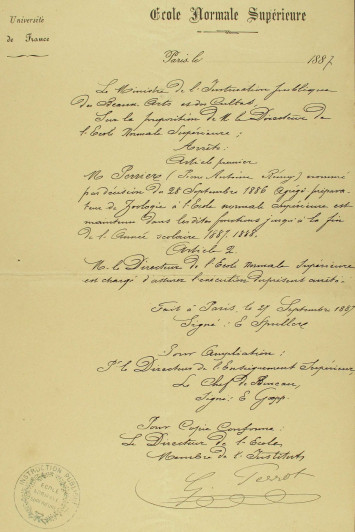 Université
de France
Ecole Normale Supérieure
Paris, le 1887
Le Ministre de l'Instruction publique
des Beaux Arts et des Cultes,
Sur la proposition de M. le Directeur de
l'Ecole Normale Supérieure;
Arrête:
Article premier
M. Perrier (Rémy) nommé
par décision du 28 Septembre 1886 agrégé prépara-
teur de Zoologie à l'Ecole normale Supérieure est
maintenu dans lesdites fonctions jusqu'à la fin
de l'Année scolaire 1887.1888.
Article 2
M. le Directeur de l'Ecole normale Supérieure
est chargé d'assurer l'exécution du présent arrêté.
Fait à Paris, le 29 Septembre 1887
Signé: E Spuller
Pour Ampliation:
Pr le Directeur de l'Enseignement Supérieur
Le Chef de Bureau,
Signé: E
Pour Copie Conforme:
Le Directeur de l'Ecole,
Membre de l'Institut
G. Perrot
INSTRUCTION PUBLIQUE
ECOLE NORMALE